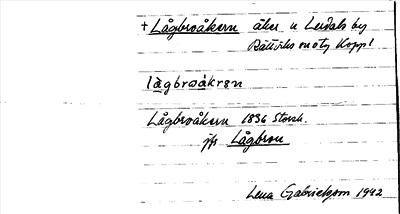 + Lågbroåkern åker n Lerdals by
Rättviks sn o tg Kopp l
lågbroåkrən
Lågbroåkern 1836 Storsk.
jfr Lågbron
Lena Gabrielsson 1942